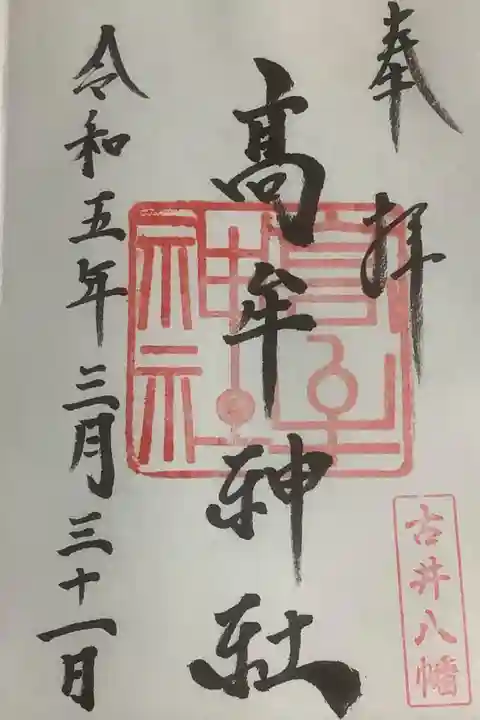 奉拝
古井八幡
髙牟神社
令和五年三月三十一日